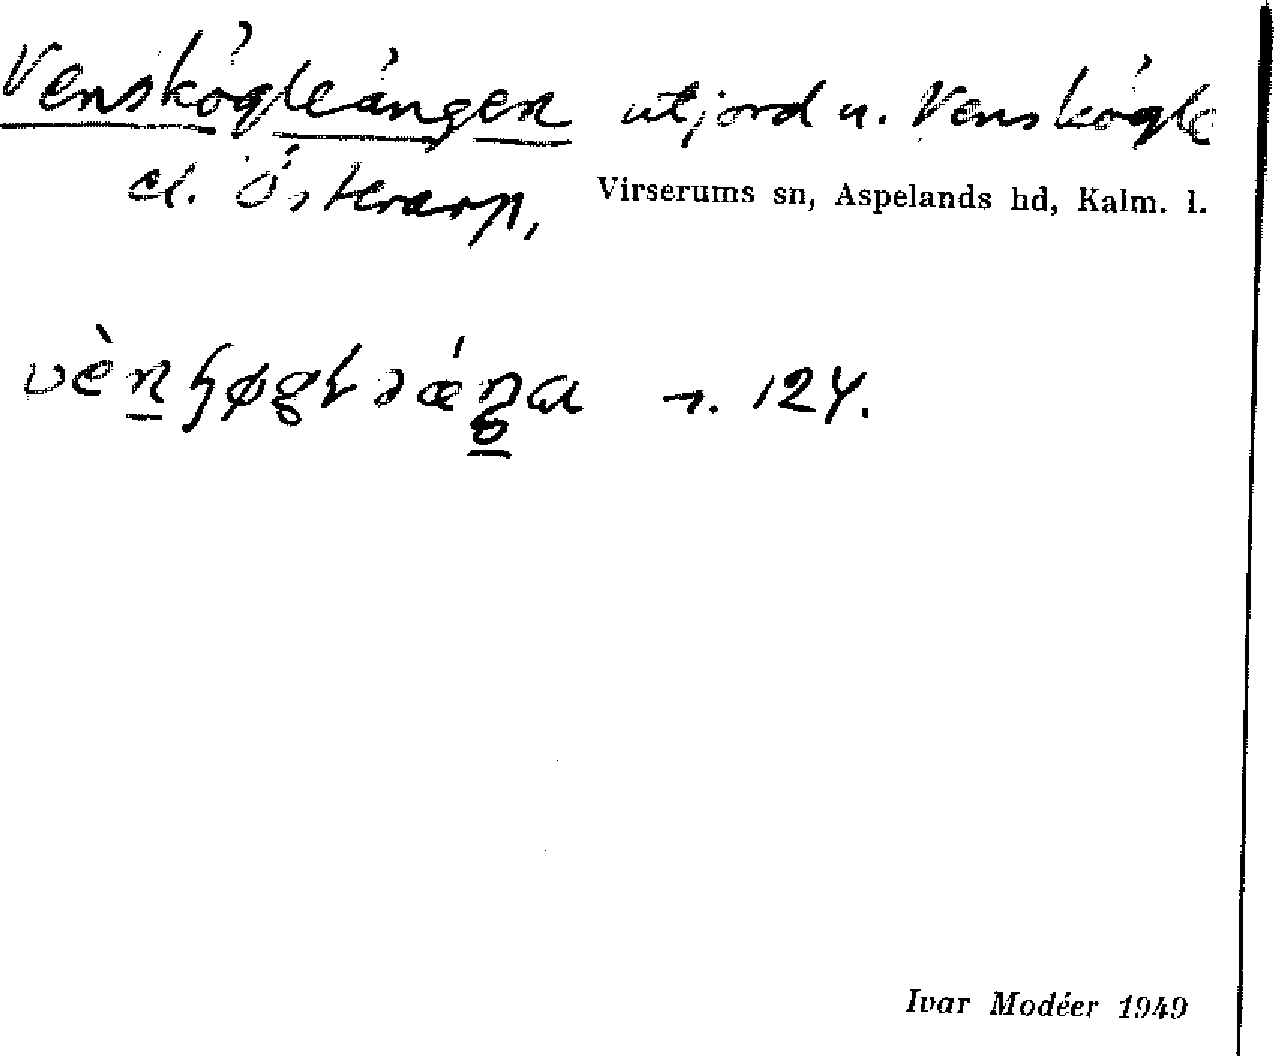 Venskögleängen utjord u. Venskögle
cl. Österarp, Virserums sn, Aspelands hd, Kalm. l.
124.
Ivar Modéer 1949